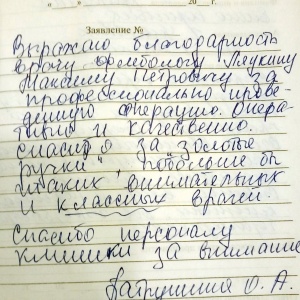 " " 20 г.
Заявление №
Выражаю благодарность
врачу флебологу
Максиму Петровичу за
профессионально прове-
денную операцию. Опера-
тивно и качественно.
Спасибо за "золотые
ручки", побольше бы
таких внимательных
и классных врачей.
Спасибо персоналу
клиники за внимание
О. А.